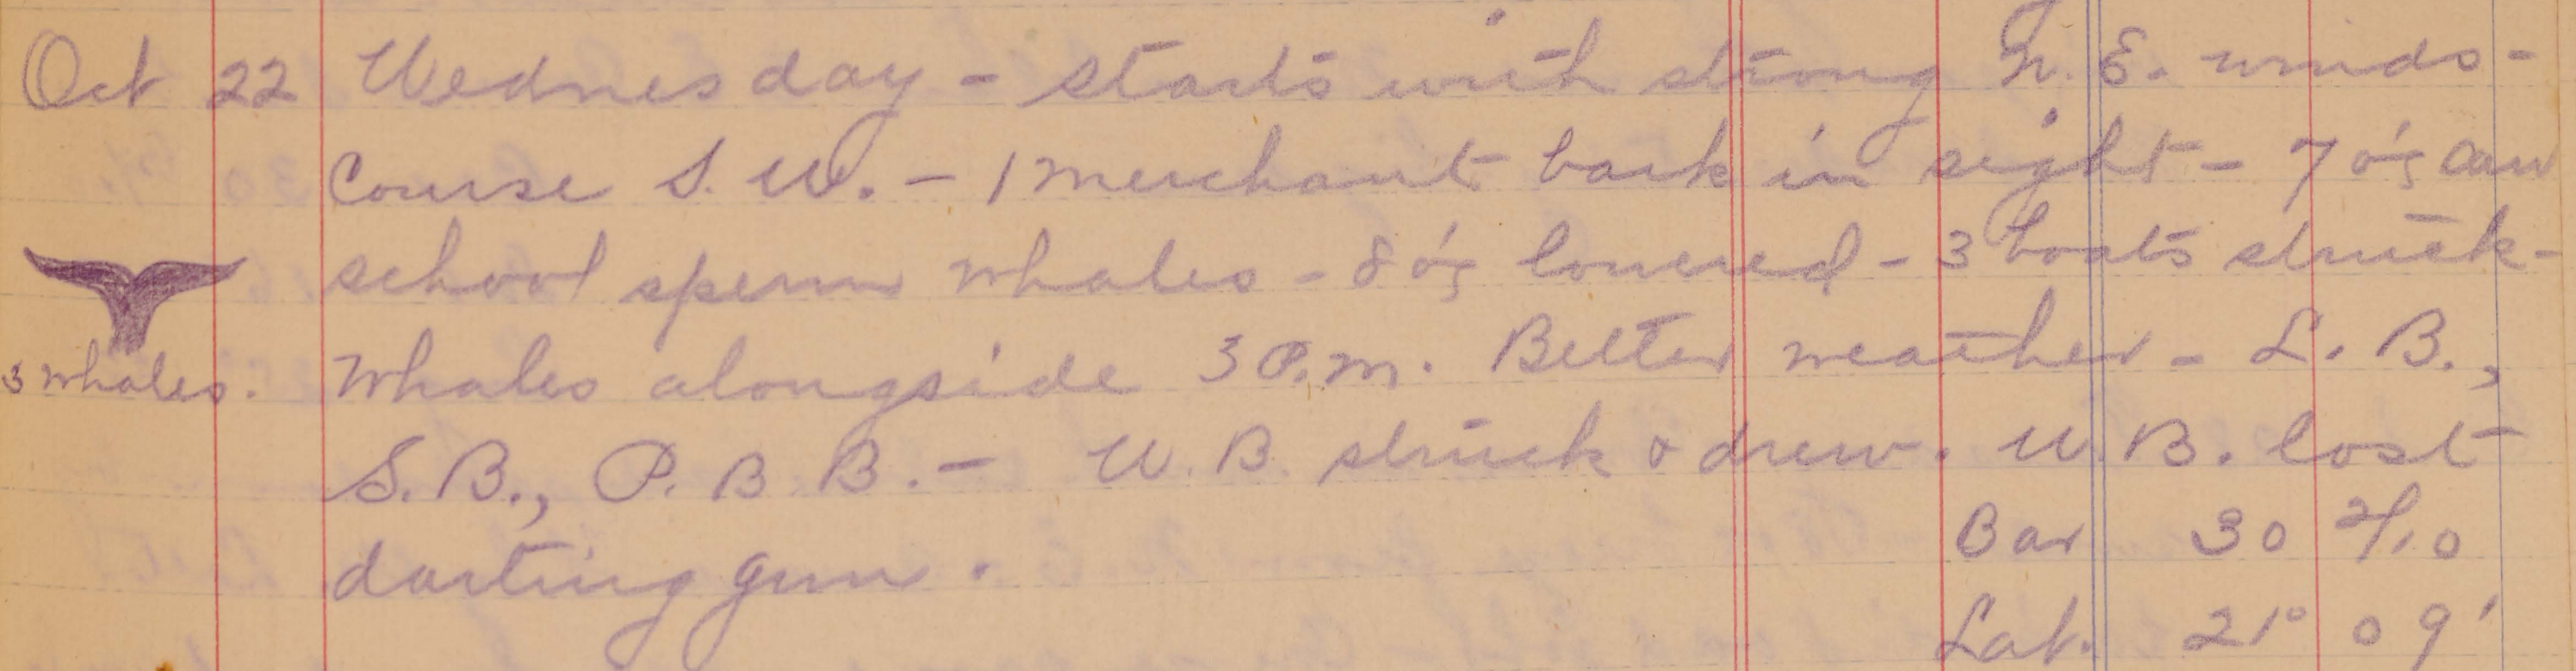 Oct 22 Wednesday - starts with strong N. E. winds -
Course S. W. - 1 merchant bark in sight - 7 o'c saw
school sperm whales - 8 o'c lowered - 3 boats struck -
3 whales. Whales alongside 3 P.m. Better weather - L. B.,
S. B., P. B B. - W. B. struck & drew. W. B. lost
Bar 30 2/10
darting gun.
Lat. 21° 09'